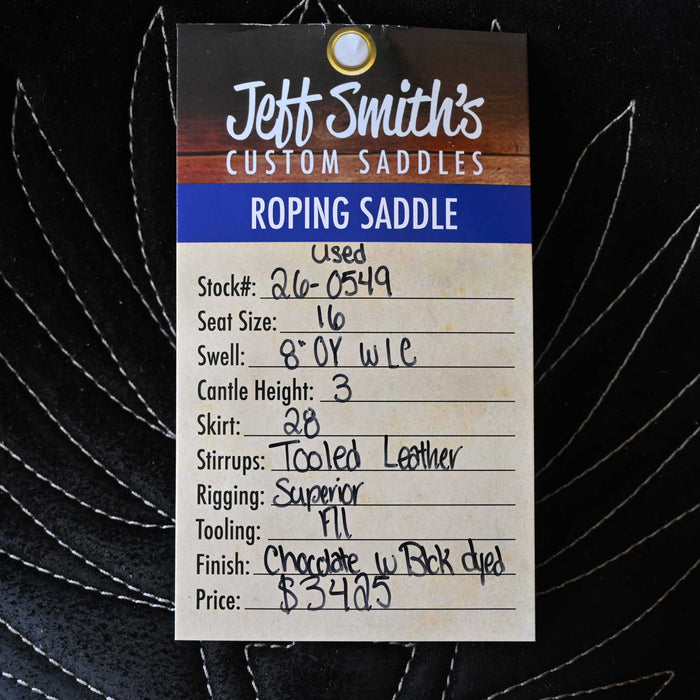 Jeff Smith's
CUSTOM SADDLES
ROPING SADDLE
Used
Stock#: 26-0549
Seat Size: 16
Swell: 8" OY w LC
Cantle Height: 3
Skirt: 28
Stirrups: Tooled Leather
Rigging: Superior
Tooling:
Finish: Chocolate w Blck dyed
Price: $3425